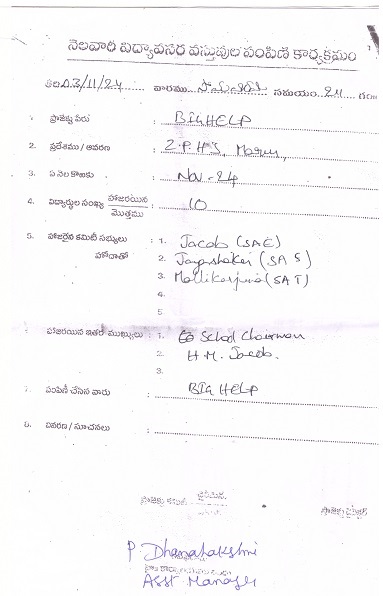 నెలవారీ విద్యావసర వస్తువుల పంపిణి కార్యక్రమం
తేది. 03/11/24 వారము సోమవారం సమయం. 211 గం॥
1. ప్రాజెక్టు పేరు : BIGHELP
2. ప్రదేశము / ఆవరణ : Z.P.H'S,
3. ఏ నెల కొఱకు : Nov - 24
4. విద్యార్థుల సంఖ్య హాజరయిన / మొత్తము : 10
5. హాజరైన కమిటీ సభ్యులు : 1. Jacob (SAE)
హోదాతో 2. Jayashaker (SA S)
3. Mallikarjuna (SAT)
4.
5
హాజరయిన ఇతర ముఖ్యులు : 1. School Chairman
2. H.M. Jacob.
3.
7. పంపిణీ చేసిన వారు : BIG HELP
8. వివరణ / సూచనలు :
P. Dhanalakshmi
Asst Manager